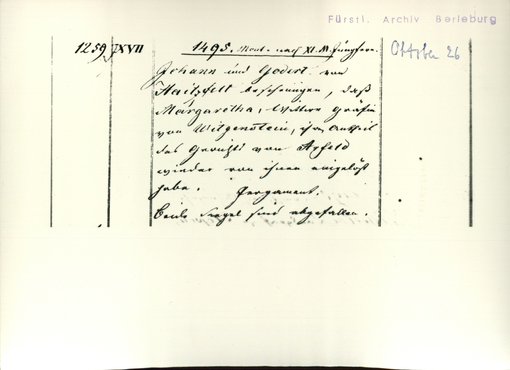 Fürstl. Archiv Berleburg
1259 XVII 1495. Mont. nach XI. M. Jungfern. Oktober 26
Johann und Godert von
Haitzfelt bescheinigen, daß
Margaretha, Wittwe Gräfin
von Witgenstein, ihren Antheil
das Gericht von Arfeld
wieder von ihnen eingelöst
habe. Pergament.
Beide Siegel sind abgefallen.